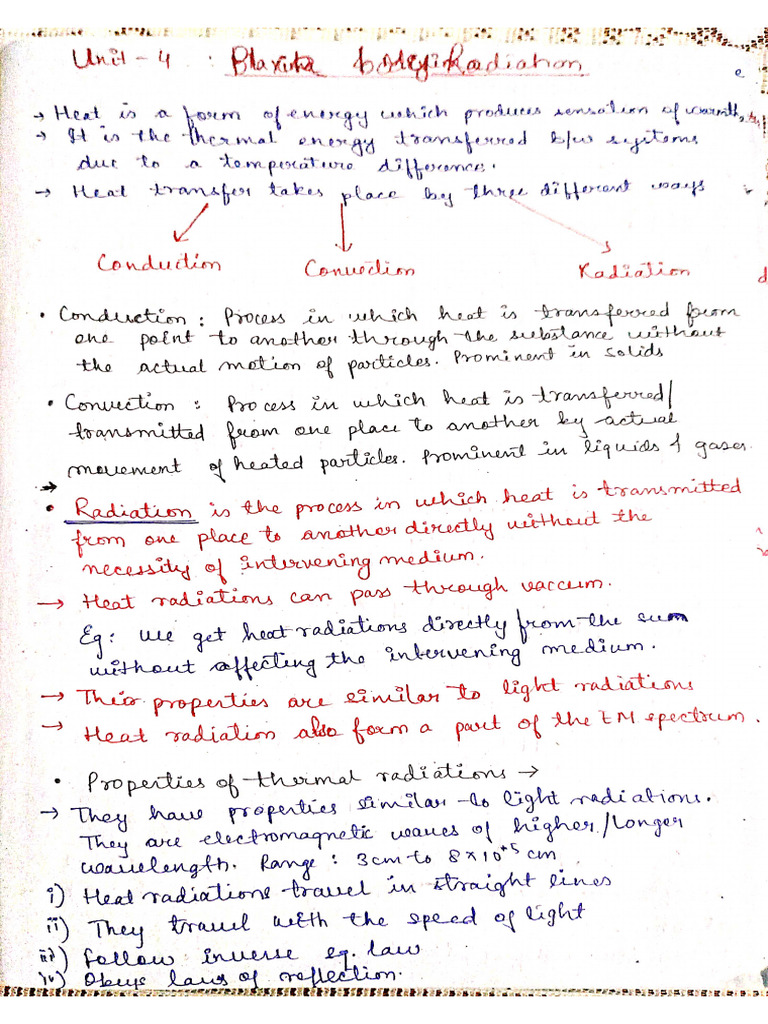 Unit - 4 : Radiation
→ Heat is a form of energy which produces sensation of warmth
→ It is the thermal energy transferred b/w systems
due to a temperature difference.
→ Heat transfer takes place by three different ways
Conduction Convection Radiation
• Conduction : Process in which heat is transferred from
one point to another through the substance without
the actual motion of particles. Prominent in solids
• Convection : Process in which heat is transferred/
transmitted from one place to another by actual
movement of heated particles. Prominent in liquids & gases
→
• Radiation is the process in which heat is transmitted
from one place to another directly without the
necessity of intervening medium.
→ Heat radiations can pass through vaccum.
Eg: We get heat radiations directly from the sun
without affecting the intervening medium.
→ Their properties are similar to light radiations
→ Heat radiation also form a part of the EM spectrum.
• Properties of thermal radiations →
→ They have properties similar to light radiations.
They are electromagnetic waves of higher/longer
wavelength. Range : 3cm to 8×10⁺⁵ cm
i) Heat radiations travel in straight lines
ii) They travel with the speed of light
iii) Follow inverse sq. law
iv) Obeys laws of reflection.